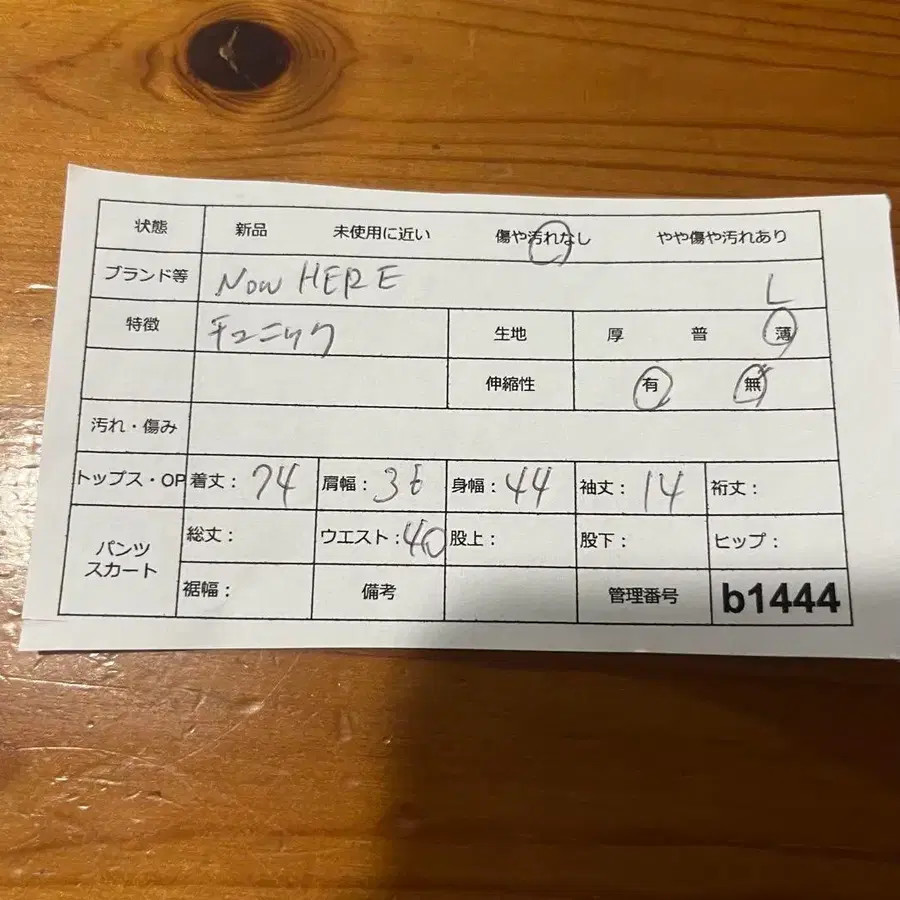 状態 新品 未使用に近い 傷や汚れなし やや傷や汚れあり
ブランド等 Now HERE L
特徴 チュニック 生地 厚 普 薄
伸縮性 有 無
汚れ・傷み
トップス・OP 着丈：74 肩幅：36 身幅：44 袖丈：14 裄丈：
パンツ スカート 総丈： ウエスト：40 股上： 股下： ヒップ：
裾幅： 備考 管理番号 b1444